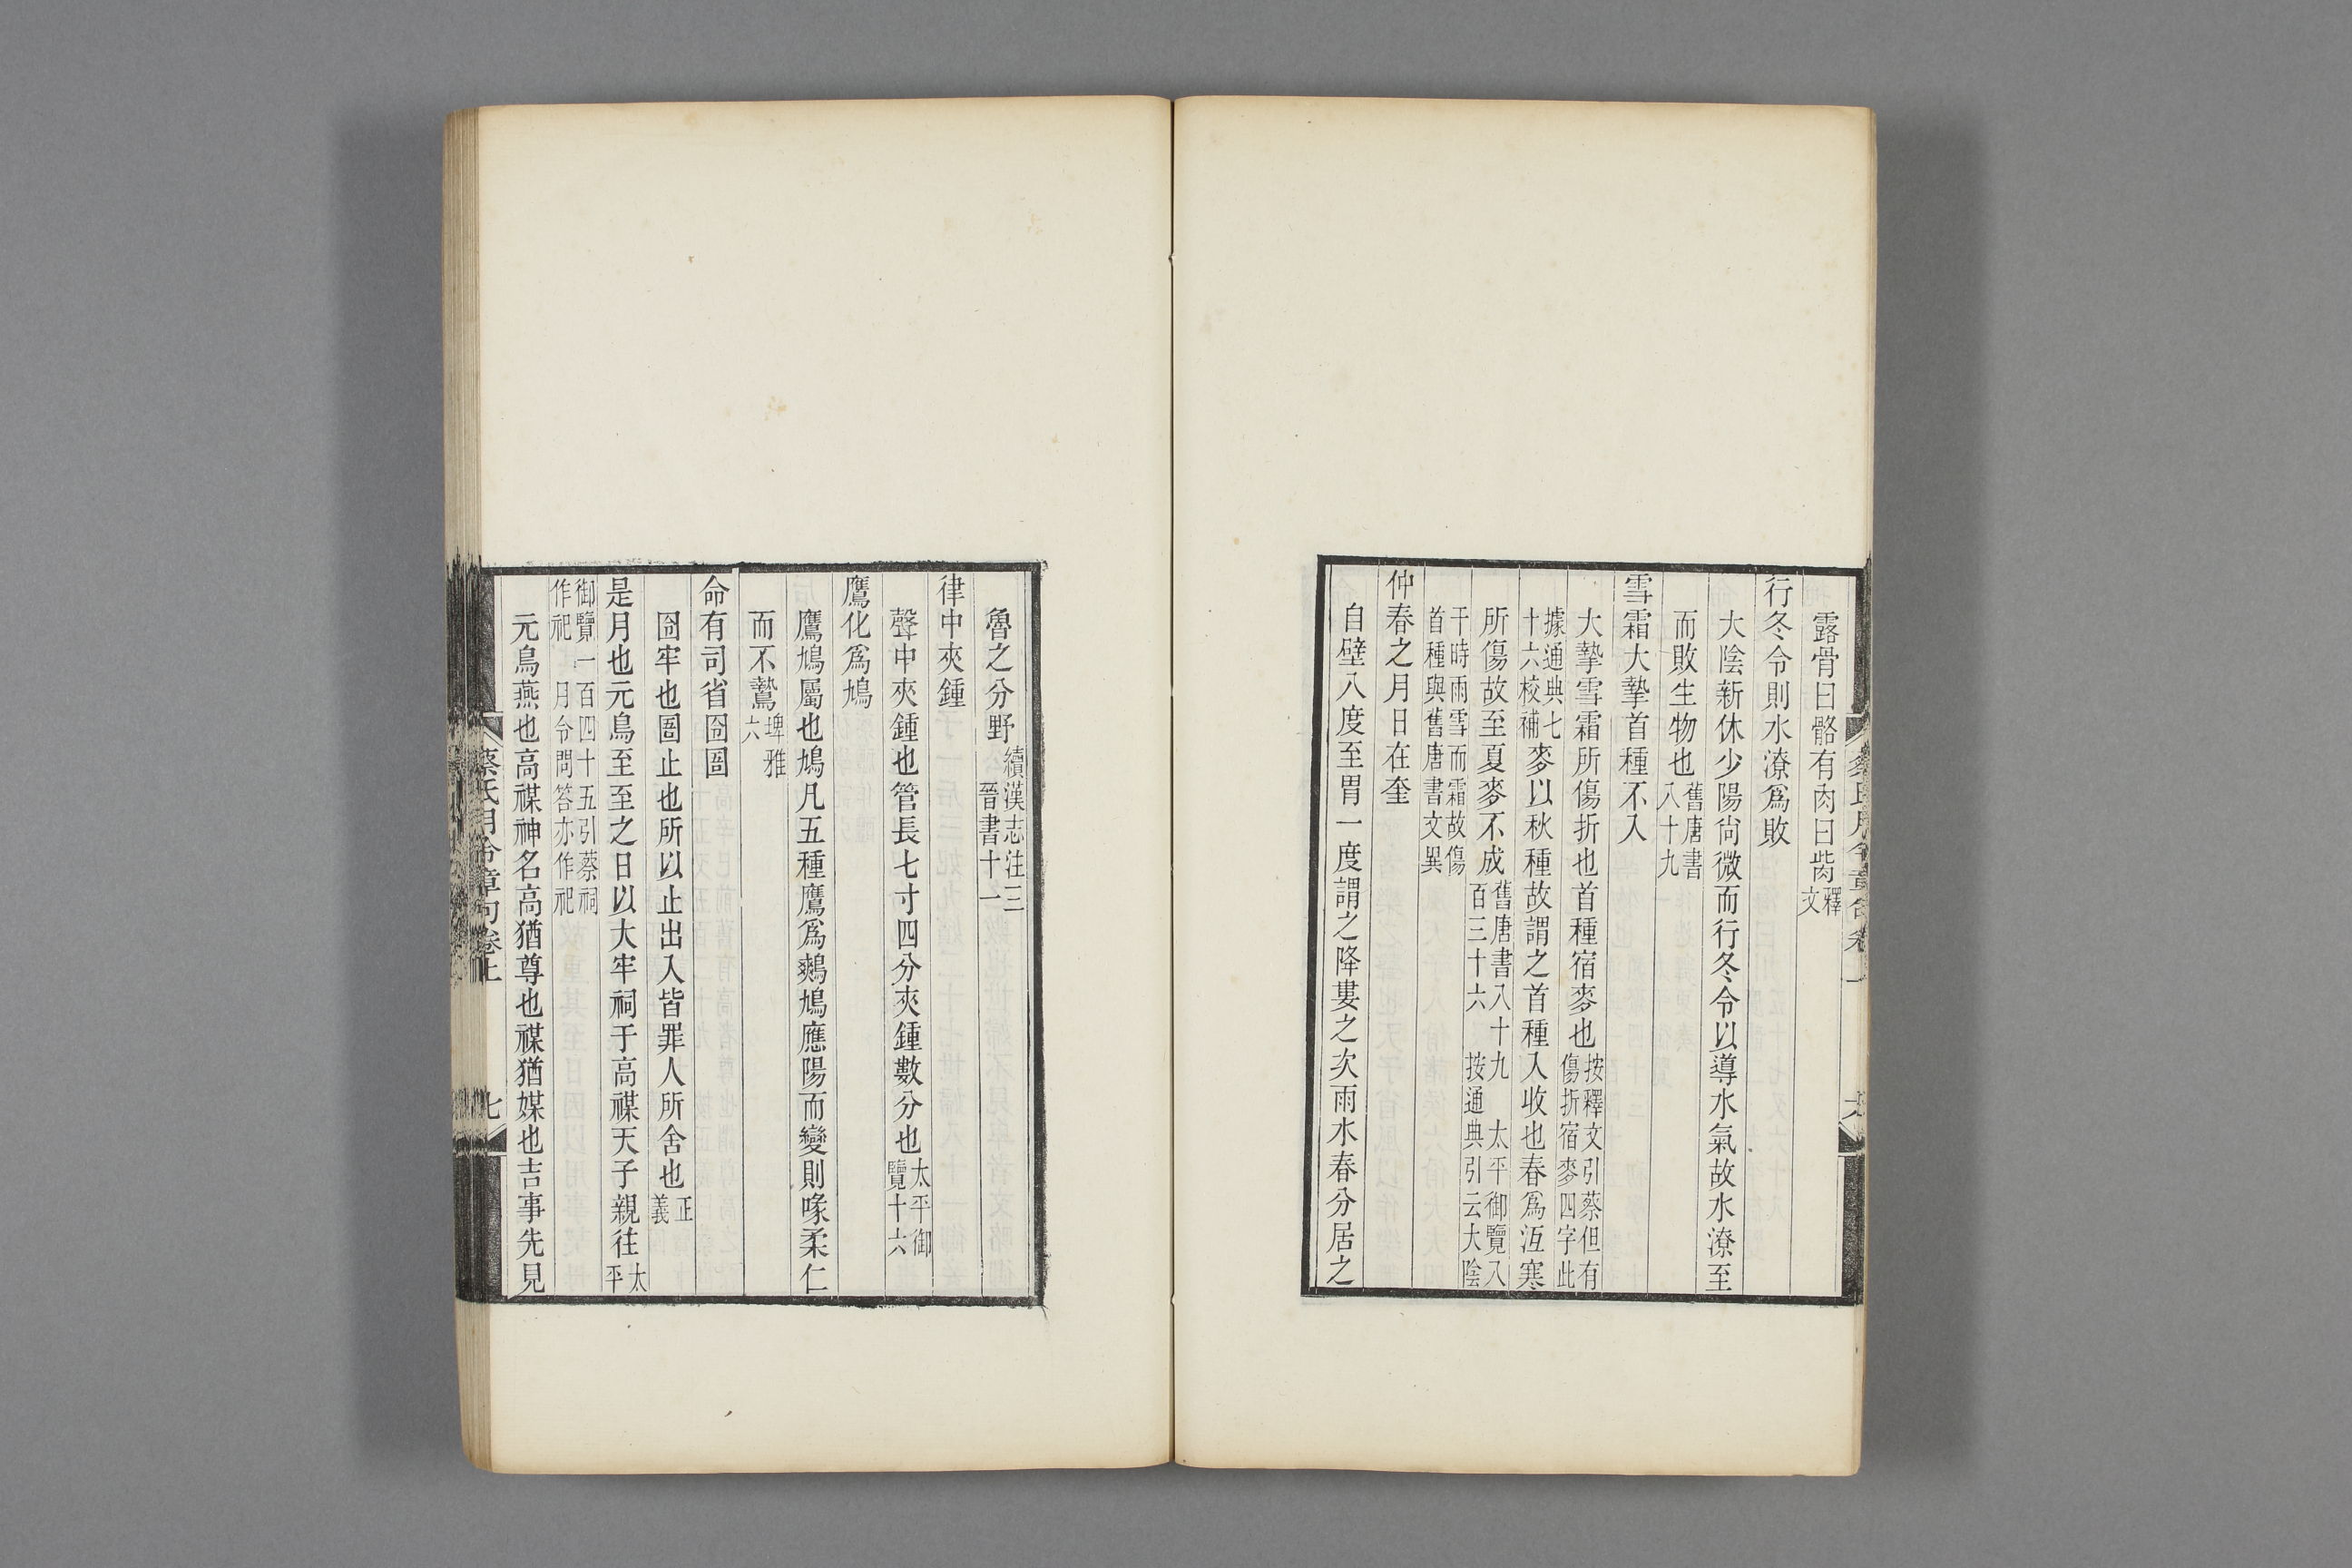 露骨曰骼有肉曰胔釋文
行冬令則水潦爲敗
大陰新休少陽尙微而行冬令以導水氣故水潦至
而敗生物也舊唐書八十九
雪霜大摯首種不入
大摯雪霜所傷折也首種宿麥也按釋文引蔡但有傷折宿麥四字此
據通典七十六校補麥以秋種故謂之首種入收也春爲沍寒
所傷故至夏麥不成舊唐書八十九 太平御覽八百三十六 按通典引云大陰
干時雨雪而霜故傷首種與舊唐書文異
仲春之月日在奎
自壁八度至胃一度謂之降婁之次雨水春分居之
蔡氏月令章句卷上
六
魯之分野續漢志注三 晉書十一
律中夾鍾
聲中夾鍾也管長七寸四分夾鍾數分也太平御覽十六
鷹化爲鳩
鷹鳩屬也鳩凡五種鷹爲鷞鳩應陽而變則喙柔仁
而不鷙埤雅六
命有司省囹圄
囹牢也圄止也所以止出入皆罪人所舍也正義
是月也元鳥至至之日以大牢祠于高禖天子親往太平
御覽一百四十五引蔡祠作祀 月令問答亦作祀
元鳥燕也高禖神名高猶尊也禖猶媒也吉事先見
蔡氏月令章句卷上
七